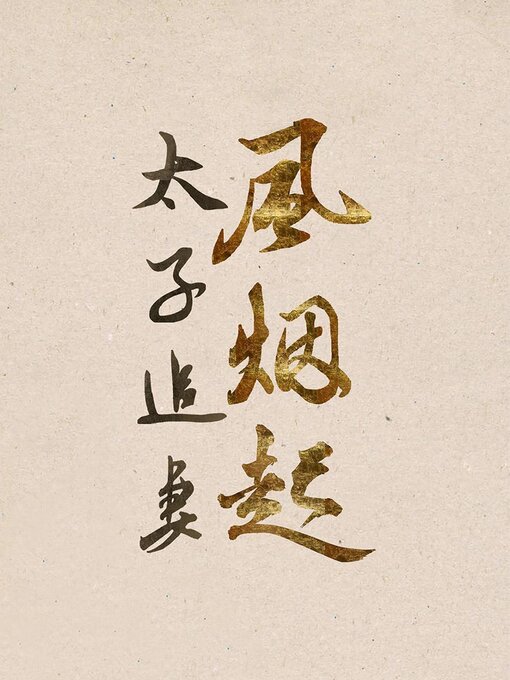 風烟起
太子追妻